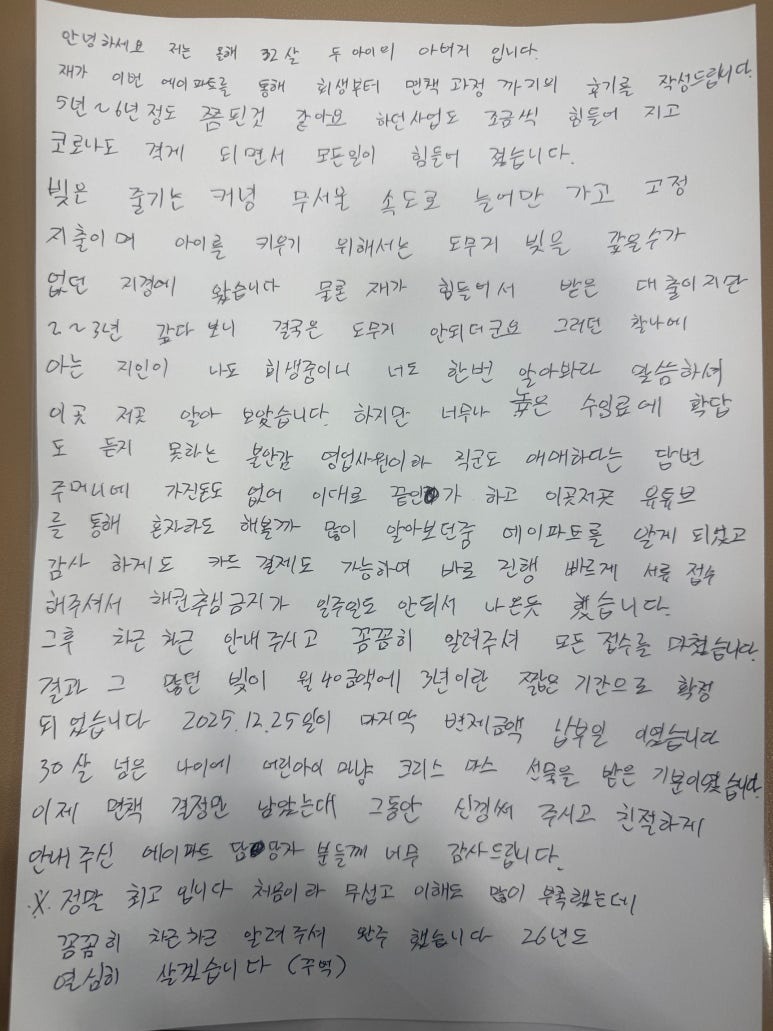 안녕하세요 저는 올해 32살 두 아이의 아버지 입니다.
재가 이번 에이파트를 통해 회생부터 면책 과정 까지의 후기를 작성드립니다.
5년~6년정도 쯤 된것 같아요 하던사업도 조금씩 힘들어 지고
코로나도 격게 되면서 모든일이 힘들어 졌습니다.
빚은 줄기는 커녕 무서운 속도로 늘어만 가고 고정
지출이며 아이를 키우기 위해서는 도무지 빚을 갚을수가
없던 지경에 왔습니다 물론 재가 힘들어서 받은 대출이지만
2~3년 갚다 보니 결국은 도무지 안되더군요 그러던 찰나에
아는 지인이 나도 회생중이니 너도 한번 알아봐라 말씀하셔
이곳 저곳 알아 보았습니다. 하지만 너무나 높은 수임료에 확답
도 듣지 못하는 불안감 영업사원이라 직군도 애매하다는 답변
주머니에 가진돈도 없어 이대로 끝인가 하고 이곳저곳 유튜브
를 통해 혼자라도 해볼까 많이 알아보던중 에이파트를 알게 되었고
감사 하게도 카드 결제도 가능하여 바로 진행 빠르게 서류 접수
해주셔서 채권추심 금지가 일주일도 안되서 나온듯 했습니다.
그후 차근 차근 안내 주시고 꼼꼼히 알려주셔 모든 접수를 마쳤습니다.
결과 그 많던 빚이 월40금액에 3년이란 짧은 기간으로 확정
되었습니다 2025.12.25일이 마지막 변제금액 납부일 이였습니다
30살 넘은 나이에 어린아이 마냥 크리스 마스 선물을 받은 기분이였습니다.
이제 면책 결정만 남았는대 그동안 신경써 주시고 친절하게
안내 주신 에이파트 담당자 분들께 너무 감사드립니다.
※. 정말 최고 입니다 처음이라 무섭고 이해도 많이 부족했는데
꼼꼼히 차근차근 알려주셔 완주 했습니다 26년도
열심히 살겠습니다 (꾸벅)